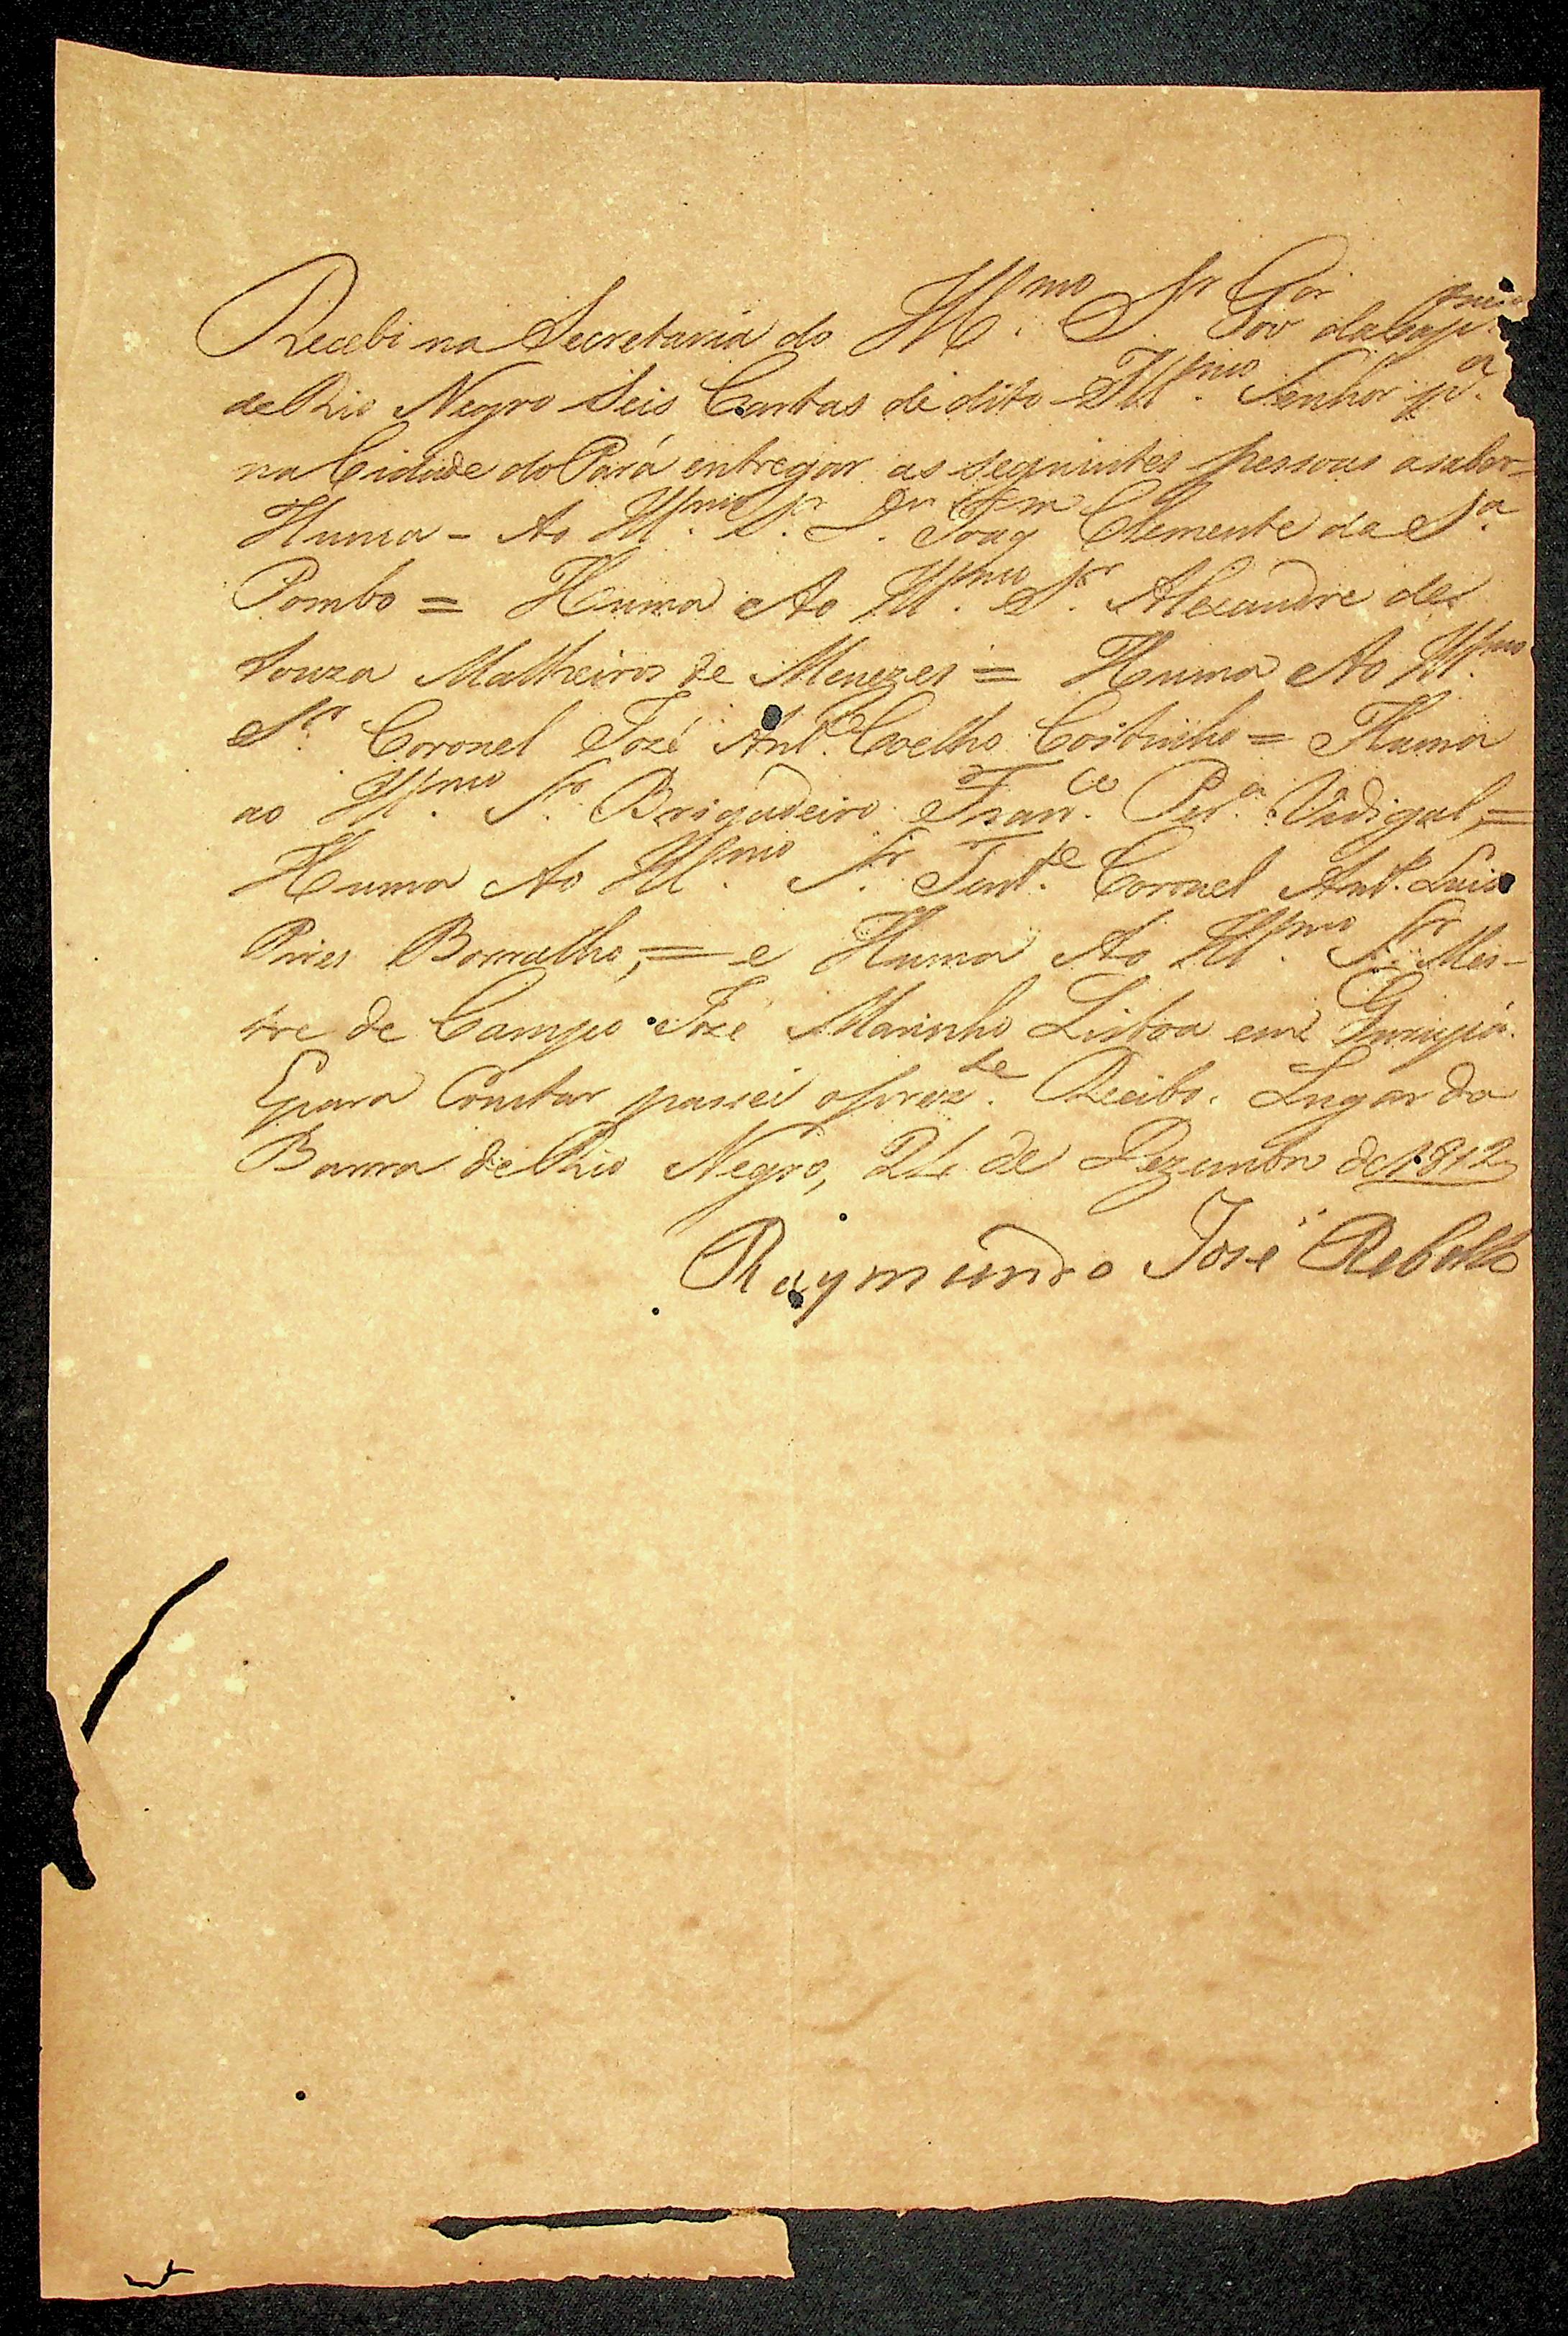 Recebi na Secretaria do Ill.mo S.r Gov.or da Cap.nia
de Rio Negro Seis Cartas de dito Ill.mo Senhor p.a
na Cidade do Pará entregar as seguintes pessoas a saber-
Huma - Ao Ill.mo S.r D.or Joaq.m Clemente da S.a
Pombo = Huma Ao Ill.mo S.r Alexandre de
Souza Malheiros de Menezes = Huma Ao Ill.mo
S.r Coronel Jozé Ant.o Coelho Coitinho = Huma
ao Ill.mo S.r Brigadeiro Fran.co Per.a Vidigal, =
Huma Ao Ill.mo S.r Tent.e Coronel Ant.o Luis
Pires Borralho, = e Huma Ao Ill.mo S.r Mes-
tre de Campo Joze Marinho Lisboa em Gurupá.
E para Constar passei o prez.te Recibo. Lugar da
Barra de Rio Negro, 24 de Dezembro de 1812
Raymundo José Rebello